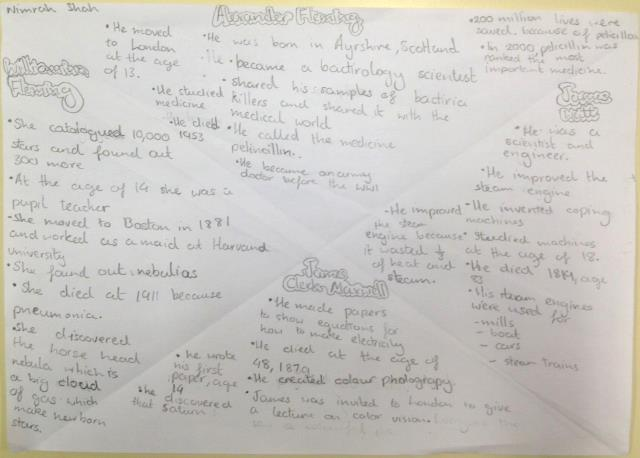 Nimrah Shah
Alexander Fleming
• He moved
to London
at the age
of 13.
• He was born in Ayrshire, Scotland
• He became a bactirology scientest
• shared his samples of bactiria
killers and shared it with the
medical world
• He studied
medicine
• He died
1953
• He called the medicine
pelinicillin..
• He became an army
doctor before the WW1
• 200 million lives were
saved because of pelicillin
• In 2000, pelicillin was
ranked the most
important medicine.
Fleming
• She catalogued 10,000
stars and found out
300 more
• At the age of 14 she was a
pupil teacher
- She moved to Boston in 1881
and worked as a maid at Harvand
university
• She found out nebulias
• She died at 1911 because
pneumonia.
• She discovered
the horse head
nebula which is
a big cloud
of gas which
make newborn
stars.
James
Watt
• He was a
scientist and
engineer.
• He improved the
steam engine
• He invented coping
machines
• Studied machines
at the age of 18.
• He died 1819, age
83
• His steam engines
were used for
- mills
- boat
- cars
- steam trains
- He improved
the steam
engine because
it wasted 1/3
of heat and
steam.
James
Clerk Maxwell
• He made papers
to show equations for
how to make electricity
• He died at the age of
48, 1879
• He created colour photography.
• James was invited to London to give
a lecture on color vision.
• he wrote
his first
paper, age
14
• he discovered
that Saturn